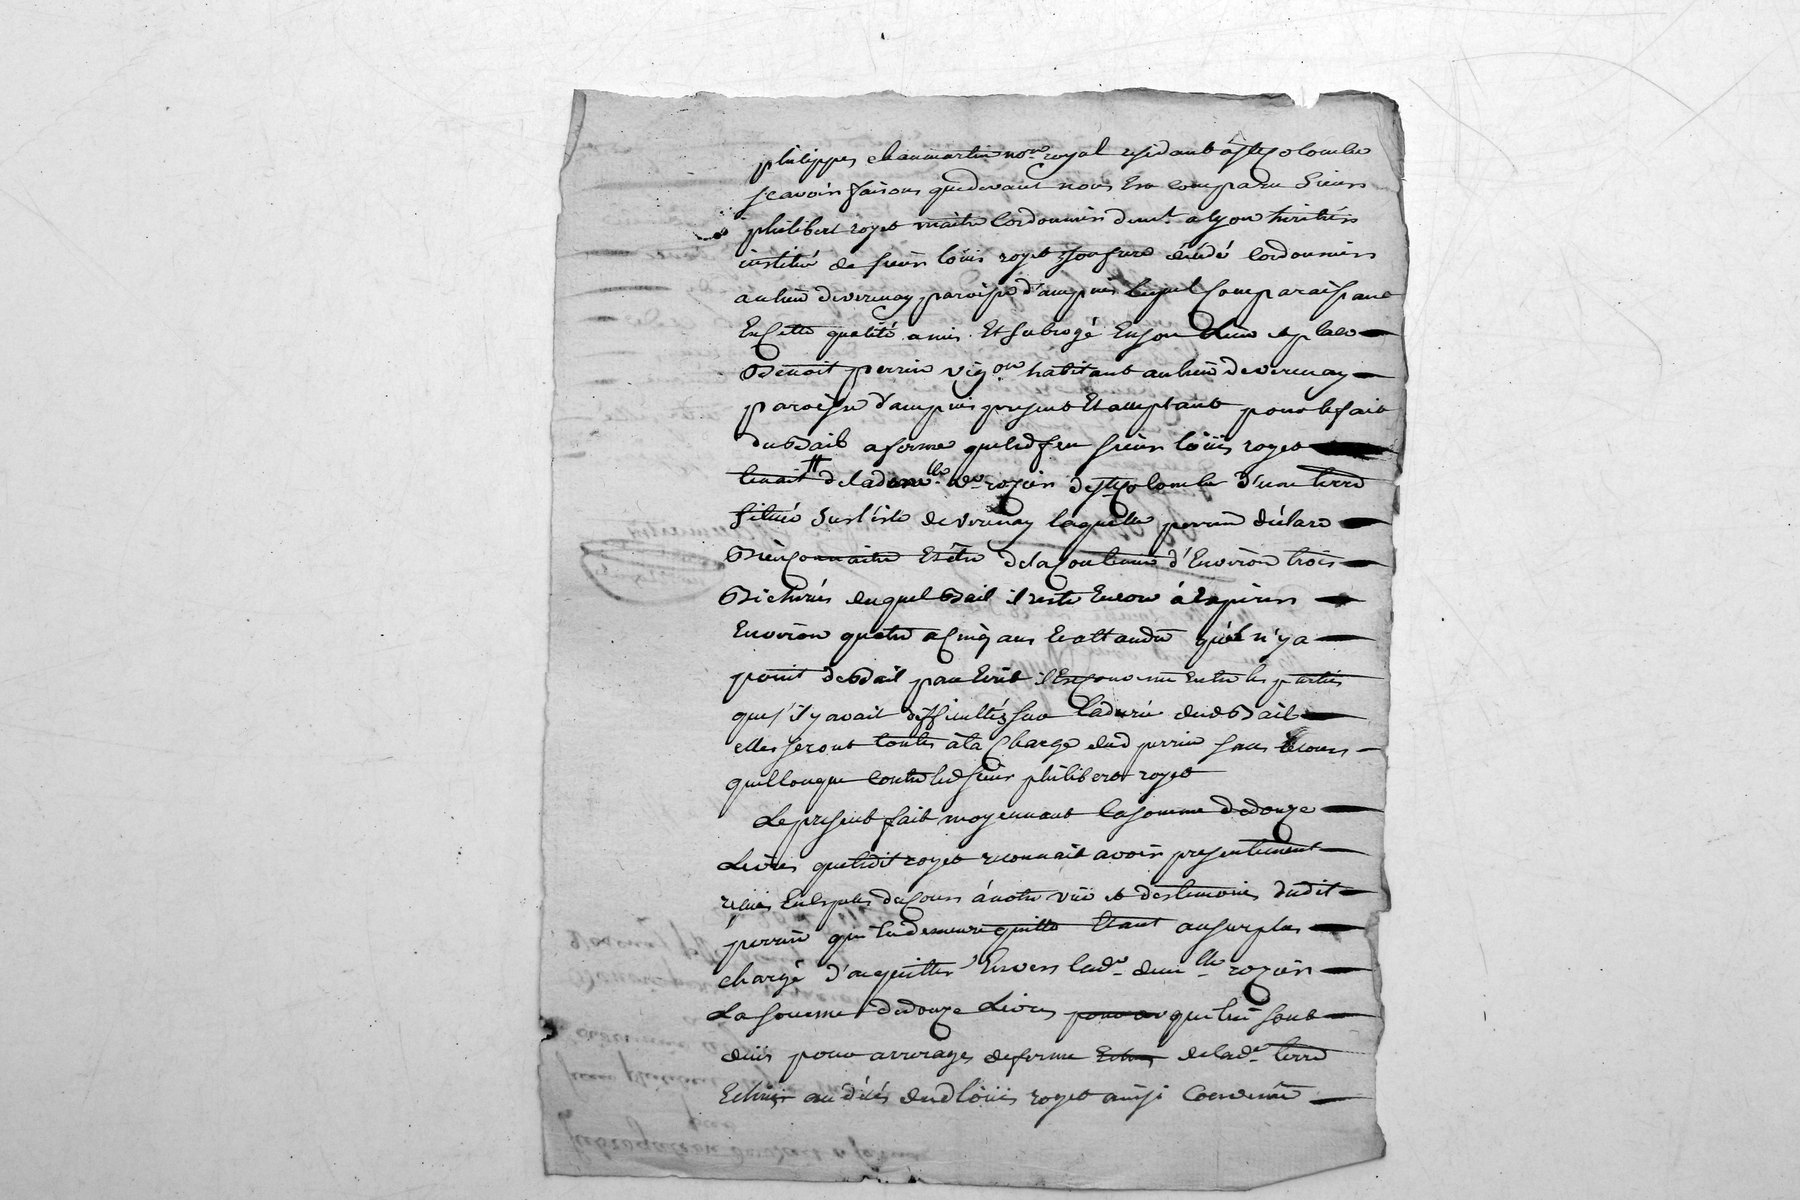 philippes chaumartin no.re royal residant à Ste Colombe
scavoir faisons que devant nous Est comparu Sieur
philibert royet maitre Cordonnier dem.t a lyon heritier
institué de sieur loüis royet son frere décédé Cordonnier
au lieu de verenay paroisse d'ampuis lequel Comparaissant
En Cette qualité a mis Et subrogé En son Lieu et place
Benoit perrin vig.on habitant au lieu de verenay
paroisse d'ampuis present Et acceptant pour le fait
du Bail a ferme que led feu sieur loüis royet
tenait de la dem.lle v.e rozier de Ste Colombe d'une terre
située sur l'isle de verenay laquelle perrin déclare
Bien Connaitre Et être de la Contenue d'Environ trois
Bicherées duquel Bail il reste Encore à Expirer
Environ quatre a Cinq ans Et attandu qu'il n'y a
point de Bail par Ecrit il Est Convenu Entre les parties
que s'il y avait difficultés sur la durée dud Bail
elles seront toutes à la Charge dud perrin sans recours
quelconque contre led sieur philibert royet
Le present fait moyennant la somme de douze
Livres que ledit royet reconnait avoir presentement
reçües En Especes de Cours à notre vüe et des temoins dudit
perrin qui En demeure quitte Etant au surplus
chargé d'acquitter Envers lad.e dem.lle rozier
La somme de douze Livres pour qui lui sont
düs pour arrerages de ferme de lad.e terre
Echus au décés dud loüis royet ainsi Convenu